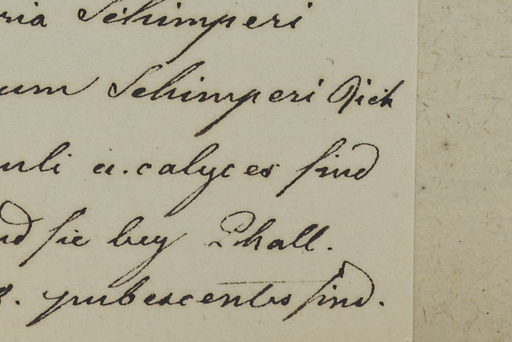 ria Schimperi
um Schimperi Rich
nli u. calyces sind
nd sie bey Phall.
s. pubescentes sind.